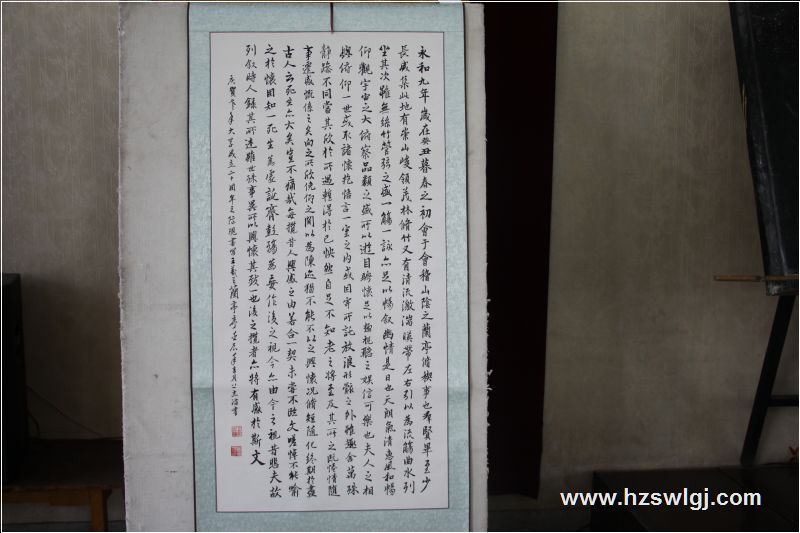 永和九年歲在癸丑暮春之初會于會稽山陰之蘭亭脩禊事也羣賢畢至少
長咸集此地有崇山峻領茂林脩竹又有清流激湍暎帶左右引以為流觴曲水列
坐其次雖無絲竹管弦之盛一觴一詠亦足以暢敘幽情是日也天朗氣清惠風和暢
仰觀宇宙之大俯察品類之盛所以遊目騁懷足以極視聽之娛信可樂也夫人之相
與俯仰一世或取諸懷抱悟言一室之內或因寄所託放浪形骸之外雖趣舍萬殊
靜躁不同當其欣於所遇暫得於己怏然自足不知老之將至及其所之既惓情隨
事遷感慨係之矣向之所欣俛仰之間以為陳迹猶不能不以之興懷況脩短隨化終期於盡
古人云死生亦大矣豈不痛哉每攬昔人興感之由若合一契未嘗不臨文嗟悼不能喻
之於懷固知一死生為虛誕齊彭殤為妄作後之視今亦由今之視昔悲夫故
列敘時人錄其所述雖世殊事異所以興懷其致一也後之攬者亦將有感於斯文
大學成立二十周年之際現書寫王羲之蘭亭序
www.hzswlgj.com